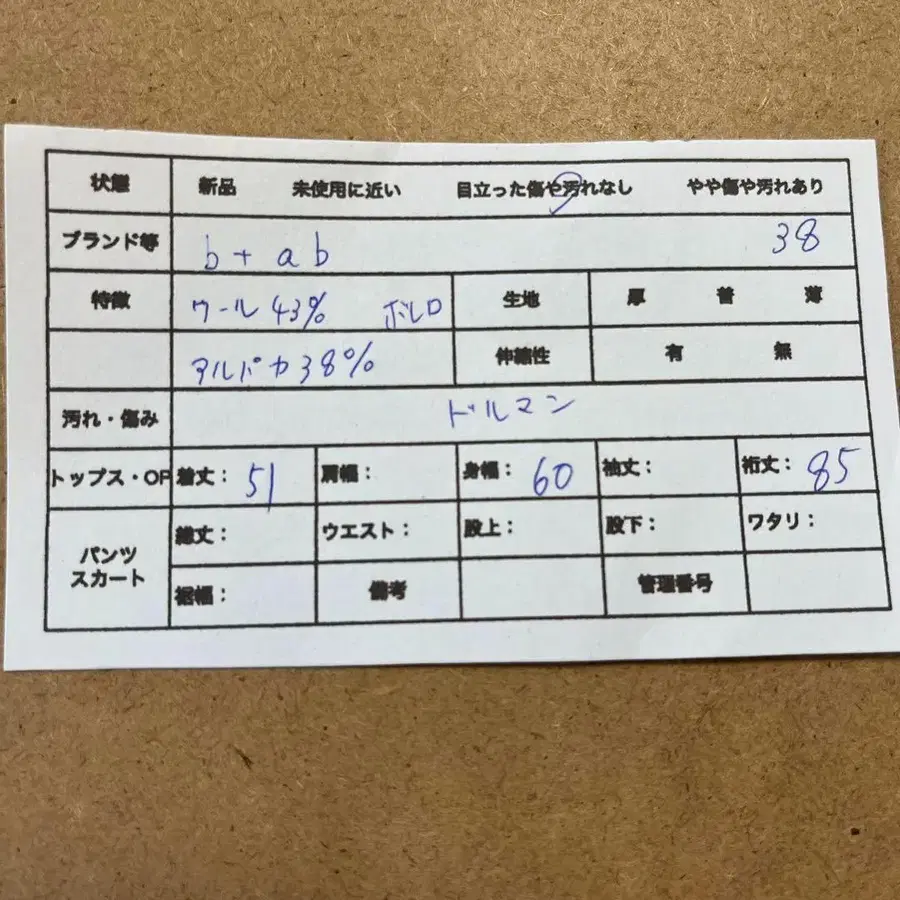 状態 新品 未使用に近い 目立った傷や汚れなし やや傷や汚れあり
ブランド等 b + ab 38
特徴 ウール 43% ボレロ 生地 厚 普 薄
アルパカ 38% 伸縮性 有 無
汚れ・傷み ドルマン
トップス・OP 着丈: 51 肩幅: 身幅: 60 袖丈: 裄丈: 85
パンツ スカート 総丈: ウエスト: 股上: 股下: ワタリ:
裾幅: 備考 管理番号